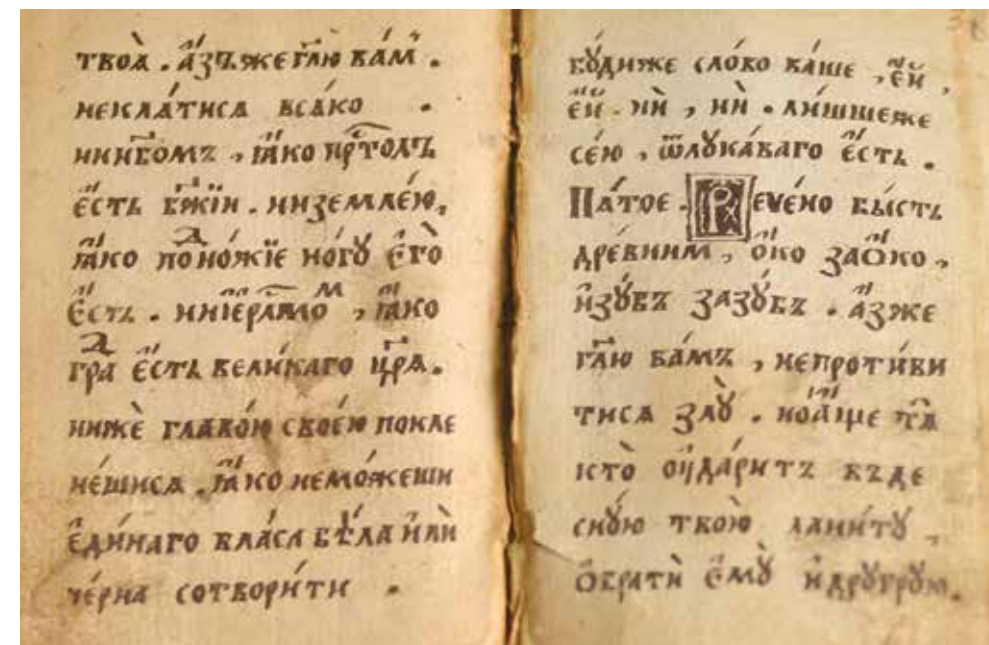 твоѧ̀ . а҆́зъже гл҃ю ва́м̾ .
неклѧ́тисѧ всѧ́ко .
нинб҃омъ , ꙗ҆́ко прⷭ҇толъ
є҆́сть бж҃їи . низемле́ю,
ꙗ҆́ко поⷣно́жїе ногꙋ̀ є҆гѡ̀
є҆́сть . ниїерⷭ҇лиⷨмо , ꙗ҆́ко
граⷣ є҆́сть вели́каго цр҃ѧ̀ .
нижѐ главо́ю свое́ю покле
не́шисѧ . ꙗ҆́ко немо́жеши
є҆ди́наго вла́са бѣ́ла и҆лѝ
че́рна сотвори́ти .
бꙋ́диже сло́во ва́ше , є҆́й ,
є҆́й . нѝ , нѝ . ли́шшеже
се́ю , ѿлꙋка́ваго є҆́сть .
Пѧ́тое . Рече́но бы́сть
дре́вним , ѻ҆́ко заѻ҆́ко ,
и҆зꙋ́бъ зазꙋ́бъ . а҆́зже
гл҃ю ва́мъ , непроти́ви
тисѧ злꙋ̀ . ноа҆́ще тѧ̀
кто̀ ᲂу҆да́ритъ въде
снꙋ́ю твою̀ лани́тꙋ ,
ѡ҆братѝ є҆мꙋ̀ и҆дрꙋгрꙋю .